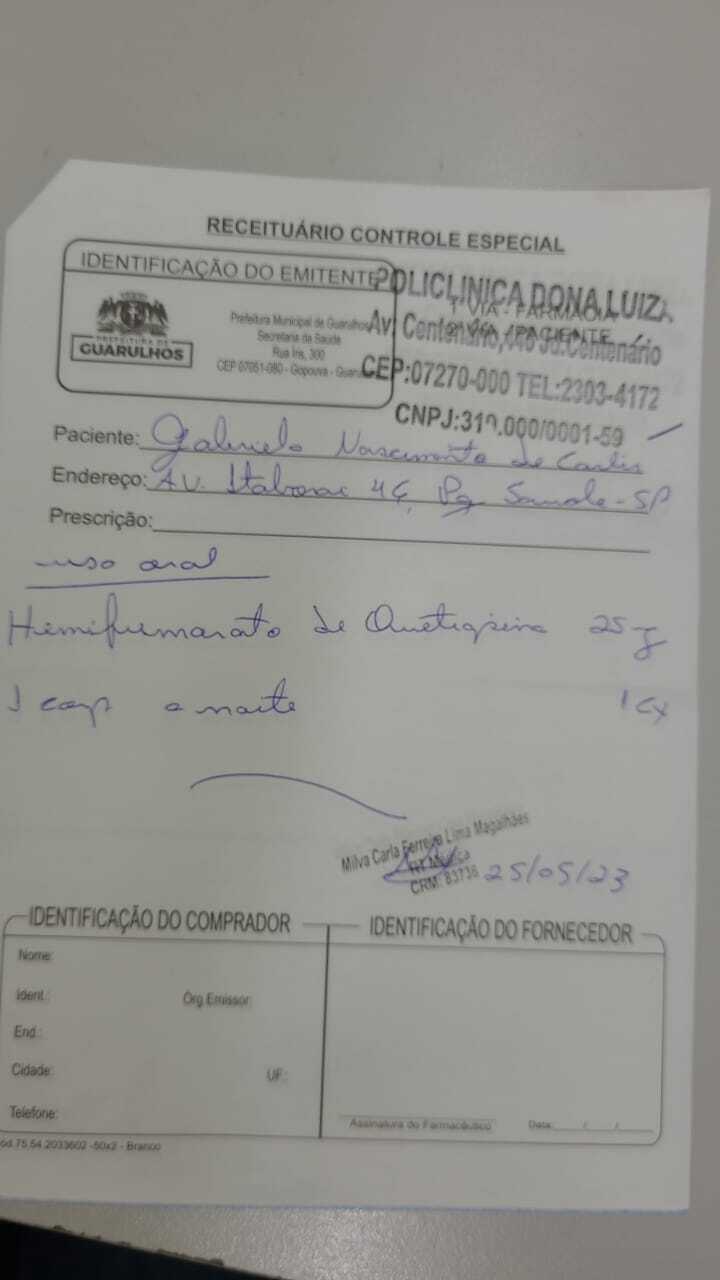 RECEITUÁRIO CONTROLE ESPECIAL
IDENTIFICAÇÃO DO EMITENTE
PREFEITURA DE
GUARULHOS
Prefeitura Municipal de Guarulhos
Secretaria da Saúde
Rua Iris, 300
CEP 07051-080 - Gopouva -
1ª VIA - FARMÁCIA
2ª VIA - PACIENTE
POLICLINICA DONA LUIZA
Av. Centenário, Jd. Centenário
CEP:07270-000 TEL:2303-4172
CNPJ: .000/0001-59
Paciente: Nascimento de
Endereço: AV.
Prescrição:
uso oral
Hemifumarato de Quetiapina 25
1 comp a noite 1 cx
Milva Carla Ferreira Lima Magalhães
Médica
CRM: 83736
25/05/23
IDENTIFICAÇÃO DO COMPRADOR
Nome:
Ident.: Órg.Emissor:
End.:
Cidade: UF.:
Telefone:
IDENTIFICAÇÃO DO FORNECEDOR
Assinatura do Farmacêutico Data: / /
ód.75.54.2033602 -50x2 - Branco